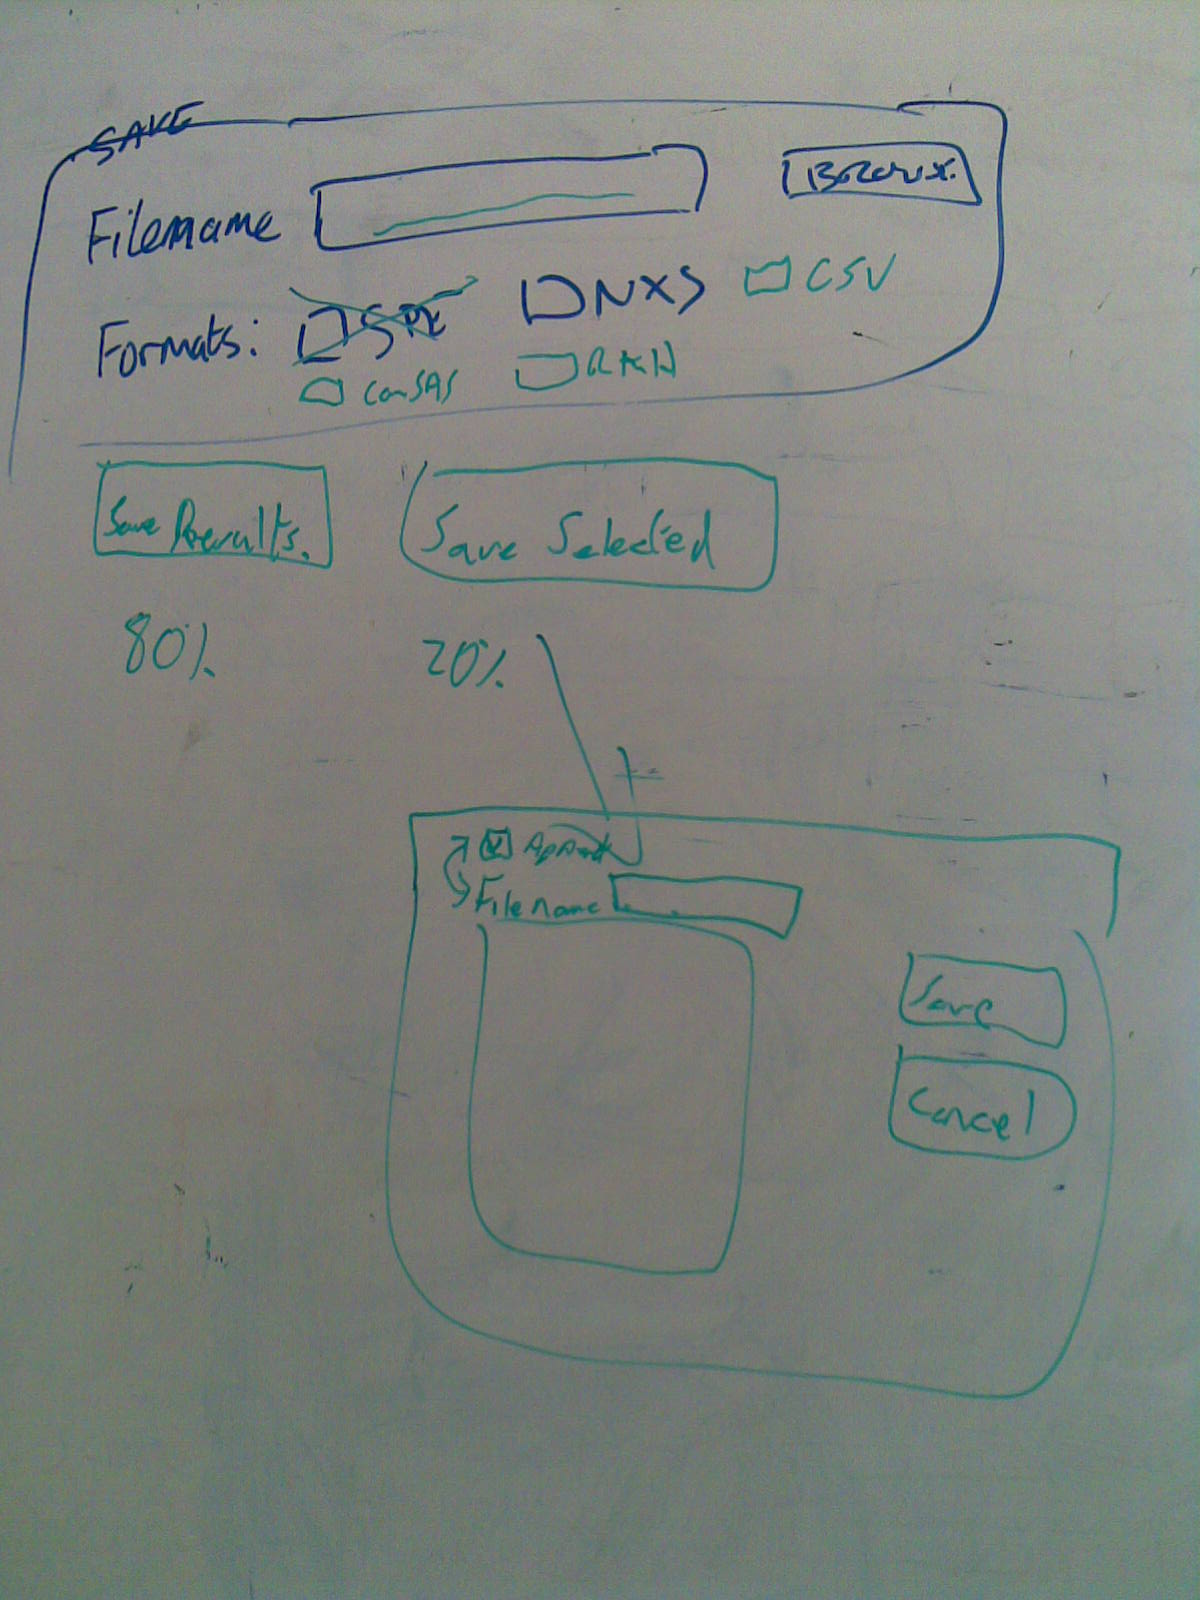 SAVE
Filename
Formats: NXS CSV
CanSAS RKH
Save Results.
Save Selected
80%
20%
Append
Filename
Save
Cancel